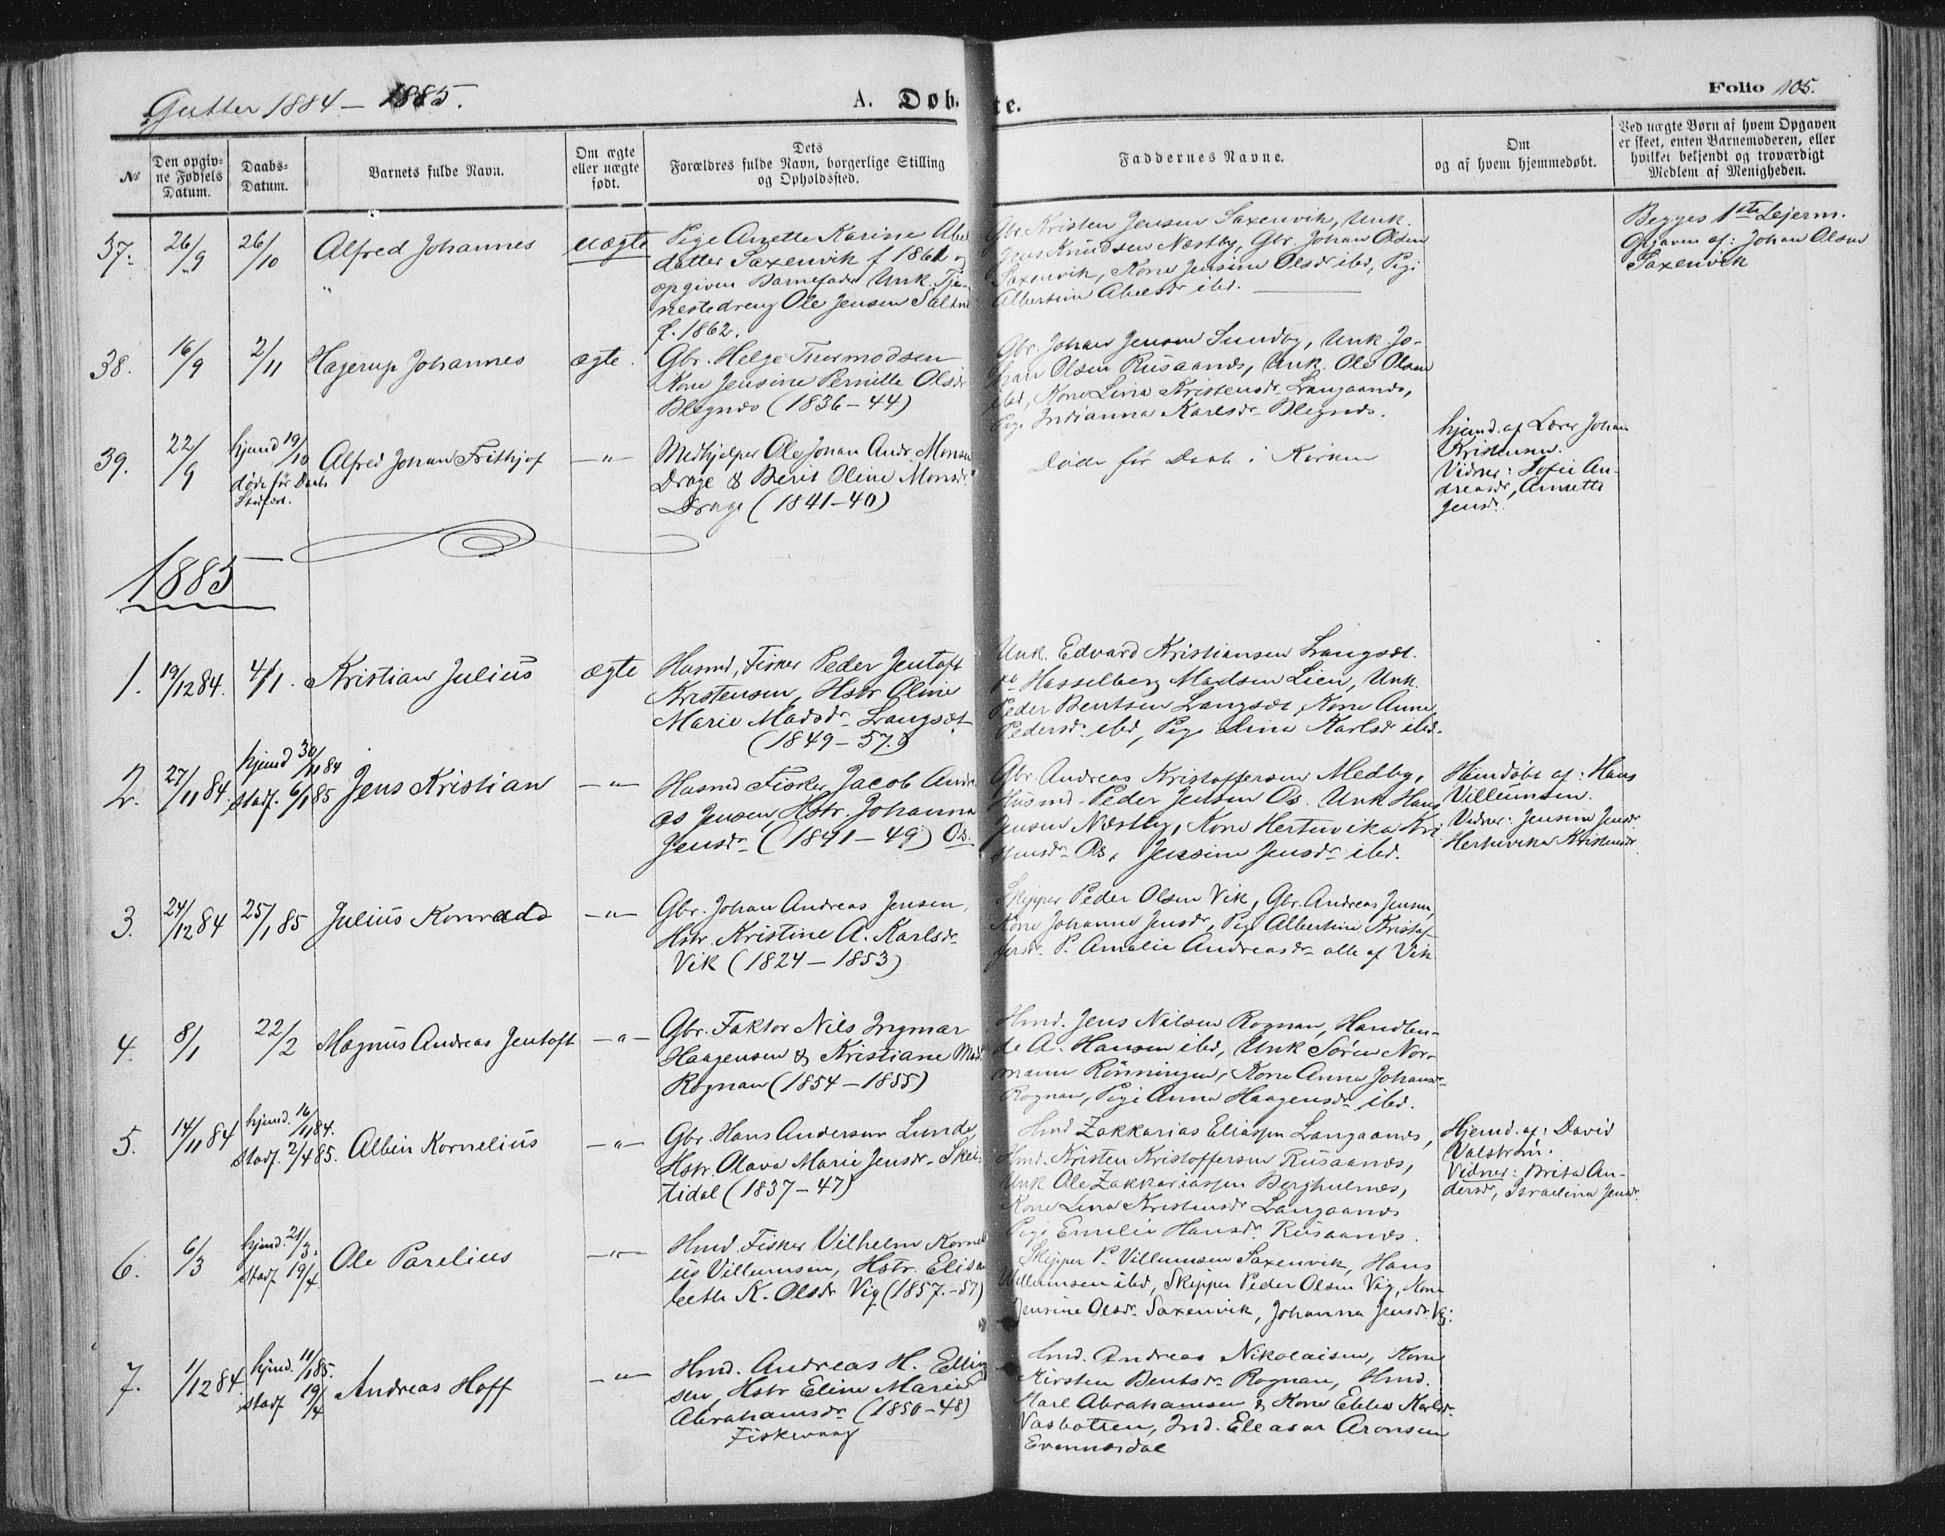 Gutter 1884 – 1885.
A. Døbte.
Folio 105.
№
Den opgiv-
ne Fødsels
Datum.
Daabs-
Datum.
Barnets fulde Navn.
Om ægte
eller uægte
født.
Dets
Forældres fulde Navn, borgerlige Stilling
og Opholdssted.
Faddernes Navne.
Om
og af hvem hjemmedøbt.
Ved uægte Børn af hvem Opgaven
er skeet, enten Barnemoderen, eller
hvilket bekjendt og troværdigt
Medlem af Menigheden.
37. 26/9 26/10 Alfred Johannes uægte
Pige Anette Karine Abel
datter Saxenvik f 1861 og
opgiven Barnefader Unk. Tje-
nestedreng Ole Jensen Saltnæs
f. 1862.
Gbr. Kristen Jensen Saxenvik, Unk.
Jens Knudsen Næstby, Gbr. Johan Olsen
Saxenvik, Kone Jensine Olsdr ibd, Pige
Albertine Abelsdr ibd.
Begges 1ste Lejerm.
Opgaven af: Johan Olsen
Saxenvik
38. 16/9 2/11 Hagerup Johannes ægte.
Gbr. Helge Tuermodsen
Kone Jensine Pernille Olsdr
Blegnæs (1836–44)
Gbr. Johan Jensen Sundby, Unk. Jo-
han Olsen Rusaanæs, Unk. Ole Olsen
ibd, Kone Lina Kristensdr Langaanæs,
Pige Indianna Karlsdr Blegnæs.
39. 22/9 hjemd 19/10
døde før Daabs
Stadfæst.
Alfred Johan Frithjof –"–
Medhjelper Ole Johan Andr. Monsen
Drage & Berit Oline Monsdr
Drage (1841–40)
Døde før Daab i Kirken
hjemd. af Lærer Johan
Kristensen.
Vidner: Sofie An-
dreasdr, Annette
Jensdr.
1885
1. 19/12 84. 4/1. Kristian Julius ægte
Husmd, Fisker Peder Jentoft
Kristensen, Hstr Oline
Marie Madsdr Langsæt
(1849–57.)
Unk. Edvard Kristiansen Langsæt.
do Hasselberg Madsen Lien, Unk.
Peder Bentsen Langsæt, Kone Anne
Pedersdr ibd, Pige Lina Karlsdr ibd.
2. 27/11 84. hjemd 30/11 84
stadf. 6/1 85
Jens Kristian –"–
Husmd Fisker Jacob Andre
as Jensen, Hstr. Johanna
Jensdr (1841–49) Os.
Gbr. Andreas Kristoffersen Medby,
Husmd Peder Jensen Os. Unk Hans
Jensen Næstby, Kone Hertevika Kri
stensdr Os, Jensine Jensdr ibd.
Hjemdøbt af: Hans
Villumsen.
Vidner: Jensine Jensdr
Hertevika Kristensdr
3. 24/12 84 25/1 85 Julius Konrad –"–
Gbr. Johan Andreas Jensen,
Hstr. Kristine A. Karlsdr
Vik (1824–1853)
Skipper Peder Olsen Vik, Gbr. Andreas Jensen,
Kone Johanna Jensdr, Pige Albertine Kristof-
fersdr. P. Amalie Andreasdr alle af Vik
4. 8/1 22/2 Magnus Andreas Jentoft –"–
Gbr. Faktor Nils Ingmar
Haagensen & Kristiane Mad.
Rognan (1854–1855)
Hmd. Jens Nilsen Rognan, Handlen-
de A. Hansen ibd, Unk Søren Nor-
mann Rønningen, Kone Anna Johansdr
Rognan, Pige Anna Haagensdr ibd.
5. 14/11 84 hjemd. 16/11 84.
Stadf. 2/4 85.
Albin Kornelius –"–
Gbr. Hans Andersen Lunde,
Hstr. Olava Marie Jensdr Skei
tidal (1837–47)
Hmd Zakkarias Eliassen Langaanæs,
Hmd. Kristen Kristoffersen Rusaanæs,
Unk Ole Zakkariassen Berghulnæs,
Kone Lina Kristensdr Langaanæs
Pige Emilie Hansdr. Rusaanæs.
Hjemd. af: David
Valstrøm.
Vidner: Brita An-
dersdr, Israelina Jensdr.
6. 6/3 hjemd. 21/3.
Stadf 19/4.
Ole Parelius –"–
Hmd. Fisker Vilhelm Kornel
ius Villumsen, Hstr. Elisa
beth K. Olsdr Vig (1857.–57)
Skipper P. Villumsen Saxenvik, Hans
Willumsen ibd, Skipper Peder Olsen Vig, Kone
Jensine Olsdr Saxenvik, Johanna Jensdr Vig.
7. 1/12 84. hjemd. 11/1 85.
stadf 19/4
Andreas Hoff –"–
Hmd. Andreas H. Elling
sen, Hstr Eline Maria
Abrahamsdr (1850–48)
Fiskvaag
Hmd. Andreas Nikolaisen, Kone
Kirsten Bentsdr Rognan, Hmd.
Karl Abrahamsen & Kone Ebba Karlsdr
Vasbotten, Ind. Eleasar Aronsen
Evennesdal